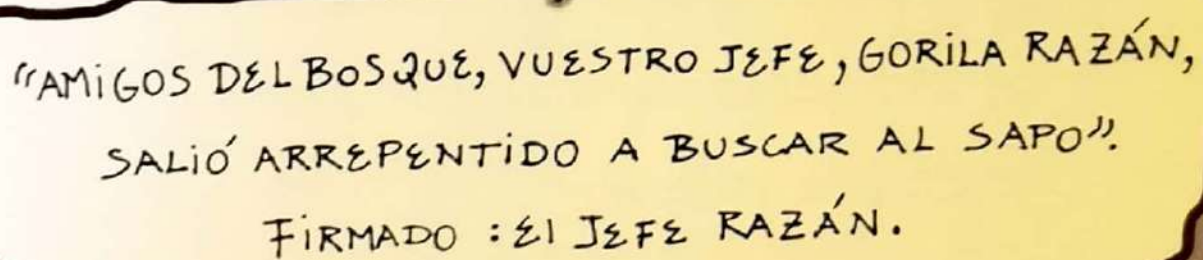 "AMIGOS DEL BOSQUE, VUESTRO JEFE, GORILA RAZÁN,
SALIÓ ARREPENTIDO A BUSCAR AL SAPO".
FIRMADO : El JEFE RAZÁN.